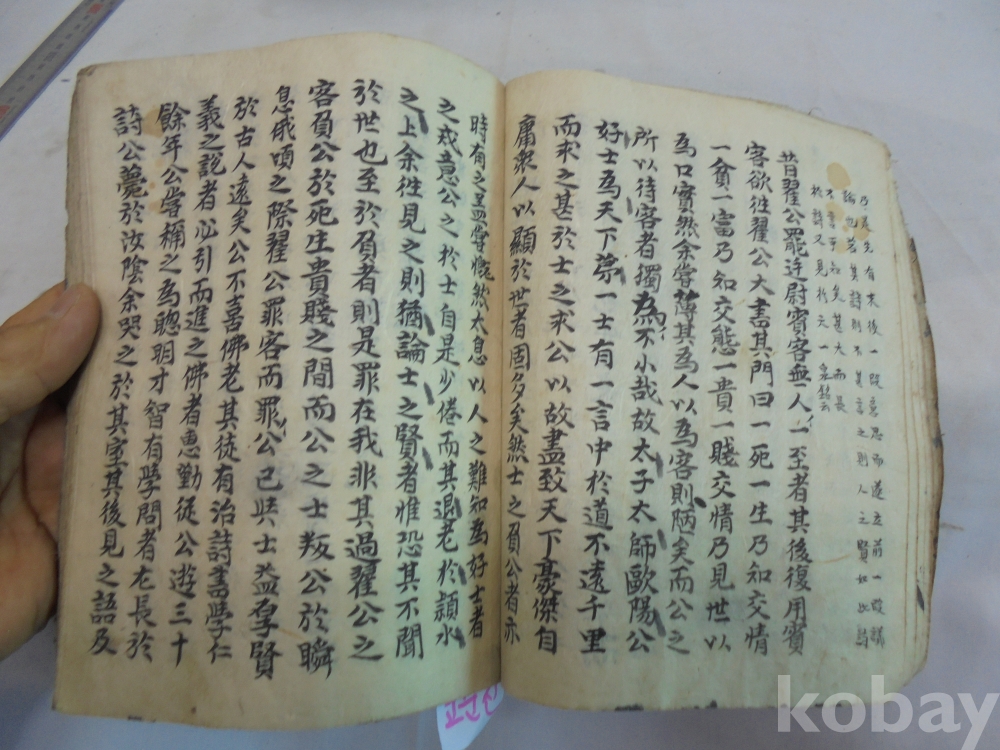 昔翟公罷廷尉賓客無人一至者其後復用賓
客欲往翟公大書其門曰一死一生乃知交情
一貧一富乃知交態一貴一賤交情乃見世以
為口實然余嘗薄其為人以為客則陋矣而公之
所以待客者獨為不小哉故太子太師歐陽公
好士為天下第一士有一言中於道不遠千里
而求之甚於士之求公以故盡致天下豪傑自
庸衆人以顯於世者固多矣然士之負公者亦
時有之盖嘗慨然太息以人之難知為好士者
之戒意公之於士自是少倦而其退老於潁水
之上余往見之則猶論士之賢者惟恐其不聞
於世也至於負者則是罪在我非其過翟公之
客負公於死生貴賤之間而公之士叛公於瞬
息俄頃之際翟公罪客而罪公己與士益厚賢
於古人遠矣公不喜佛老其徒有治詩書學仁
義之說者必引而進之佛者惠勤從公遊三十
餘年公嘗稱之為聰明才智有學問者尤長於
詩公薨於汝陰余哭之於其室其後見之語及
乃爲先有末後一段意思而遂立前一段議
論也若其詩則不甚言之則人之賢如此詩
不言可知矣甚大而長
於詩又見於六一泉銘云
고문진
kobay